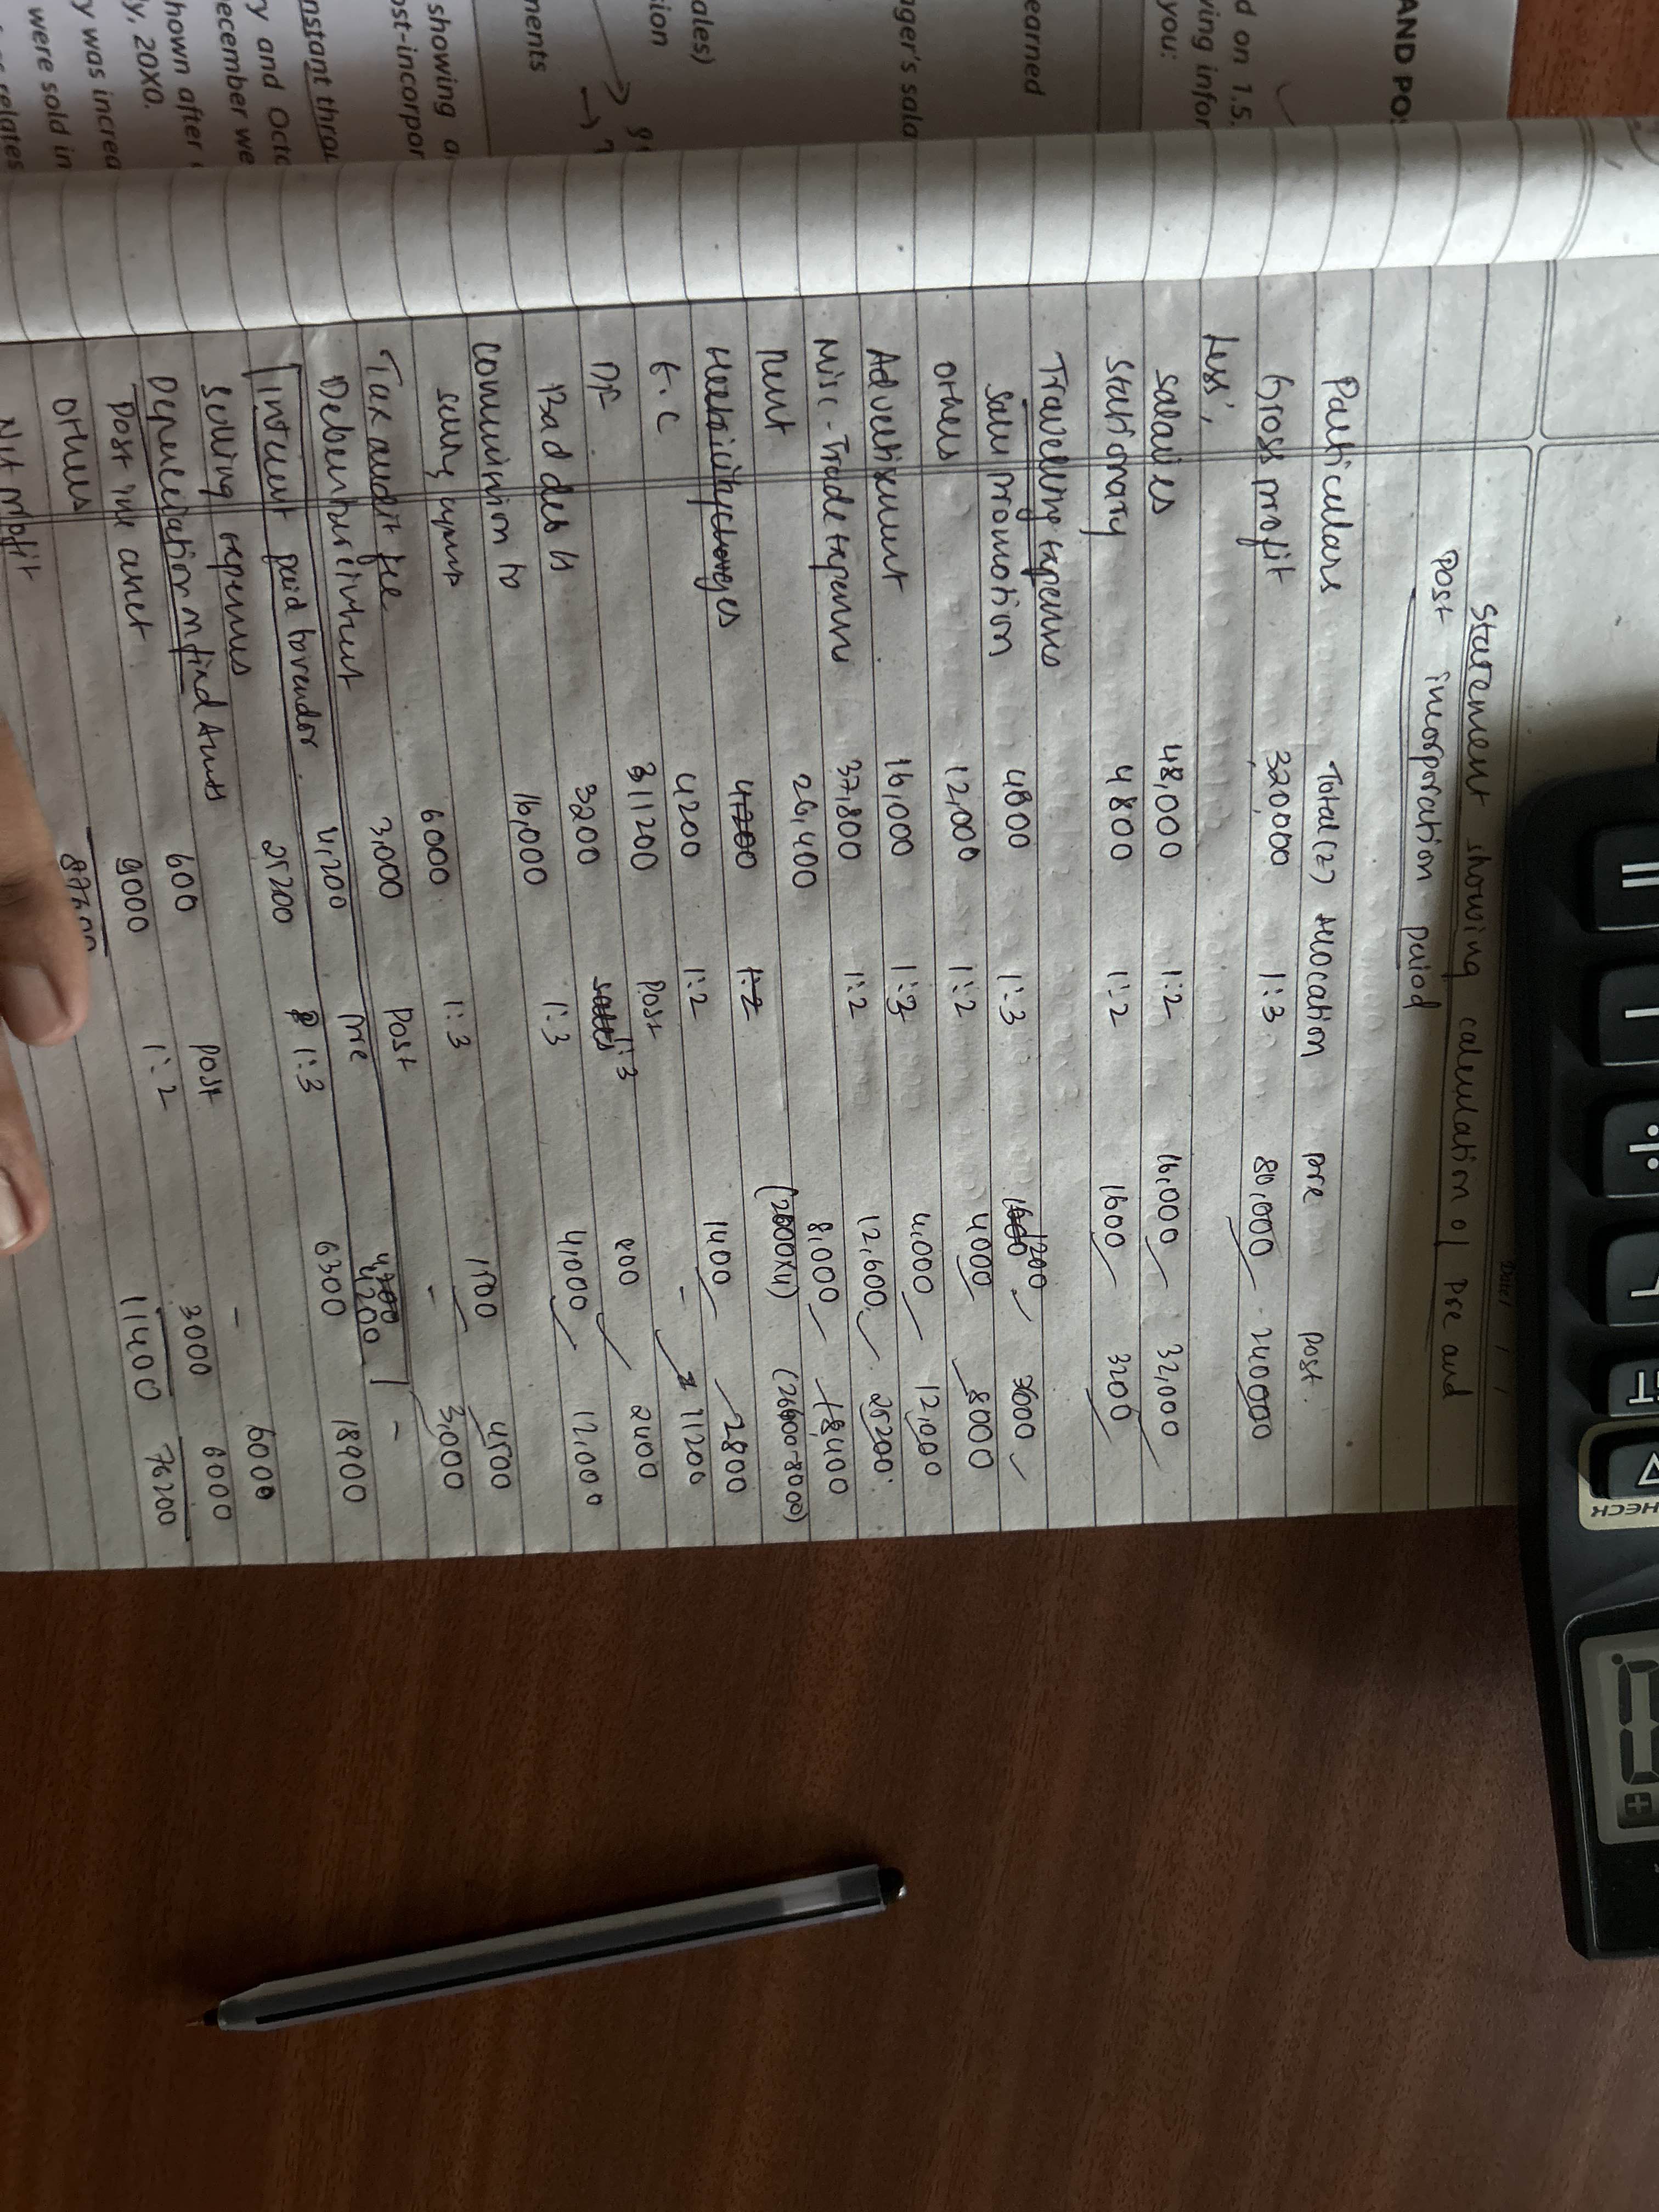 AND PO
d on 1.5.
ving infor
you:
earned
ger's sala
ales)
ion
nents
showing a
ost-incorpor
nstant throu
y and Octo
ecember we
hown after
ly, 20X0.
y was increa
were sold in
relates
Date / /
Statement showing calculation of Pre and
Post incorporation period
Particulars Total (₹) Allocation pre post.
Gross profit 320,000 1:3 80,000 240000
Less:
Salaries 48,000 1:2 16,000 32,000
Stationary 4800 1:2 1600 3200
Travelling expenses
Sales promotion 4800 1:3 1200 3600
others 12,000 1:2 4000 8000
Advertisement 16,000 1:3 4,000 12,000
Misc-Trade expenses 37,800 1:2 12,600 25200
Rent 26,400 8,000 18,400
(2000x4) (26400-8000)
Electricity charges 4200 1:2
E.C 4200 1:2 1400 2800
D.F 11200 Post - 11200
Bad debts 3200 1:3 800 2400
Commission to 16,000 1:3 4,000 12,000
selling agents
Tax audit fee 6000 1:3 1500 4500
Debenture interest 3,000 Post - 3,000
Interest paid to vendor 4,200 pre 4200 -
Selling expenses 25200 1:3 6300 18900
Depreciation on fixed Assets
Post inc asset 600 Post - 600
others 9000 1:2 3000 6000
Net profit 11400 76200
CHECK